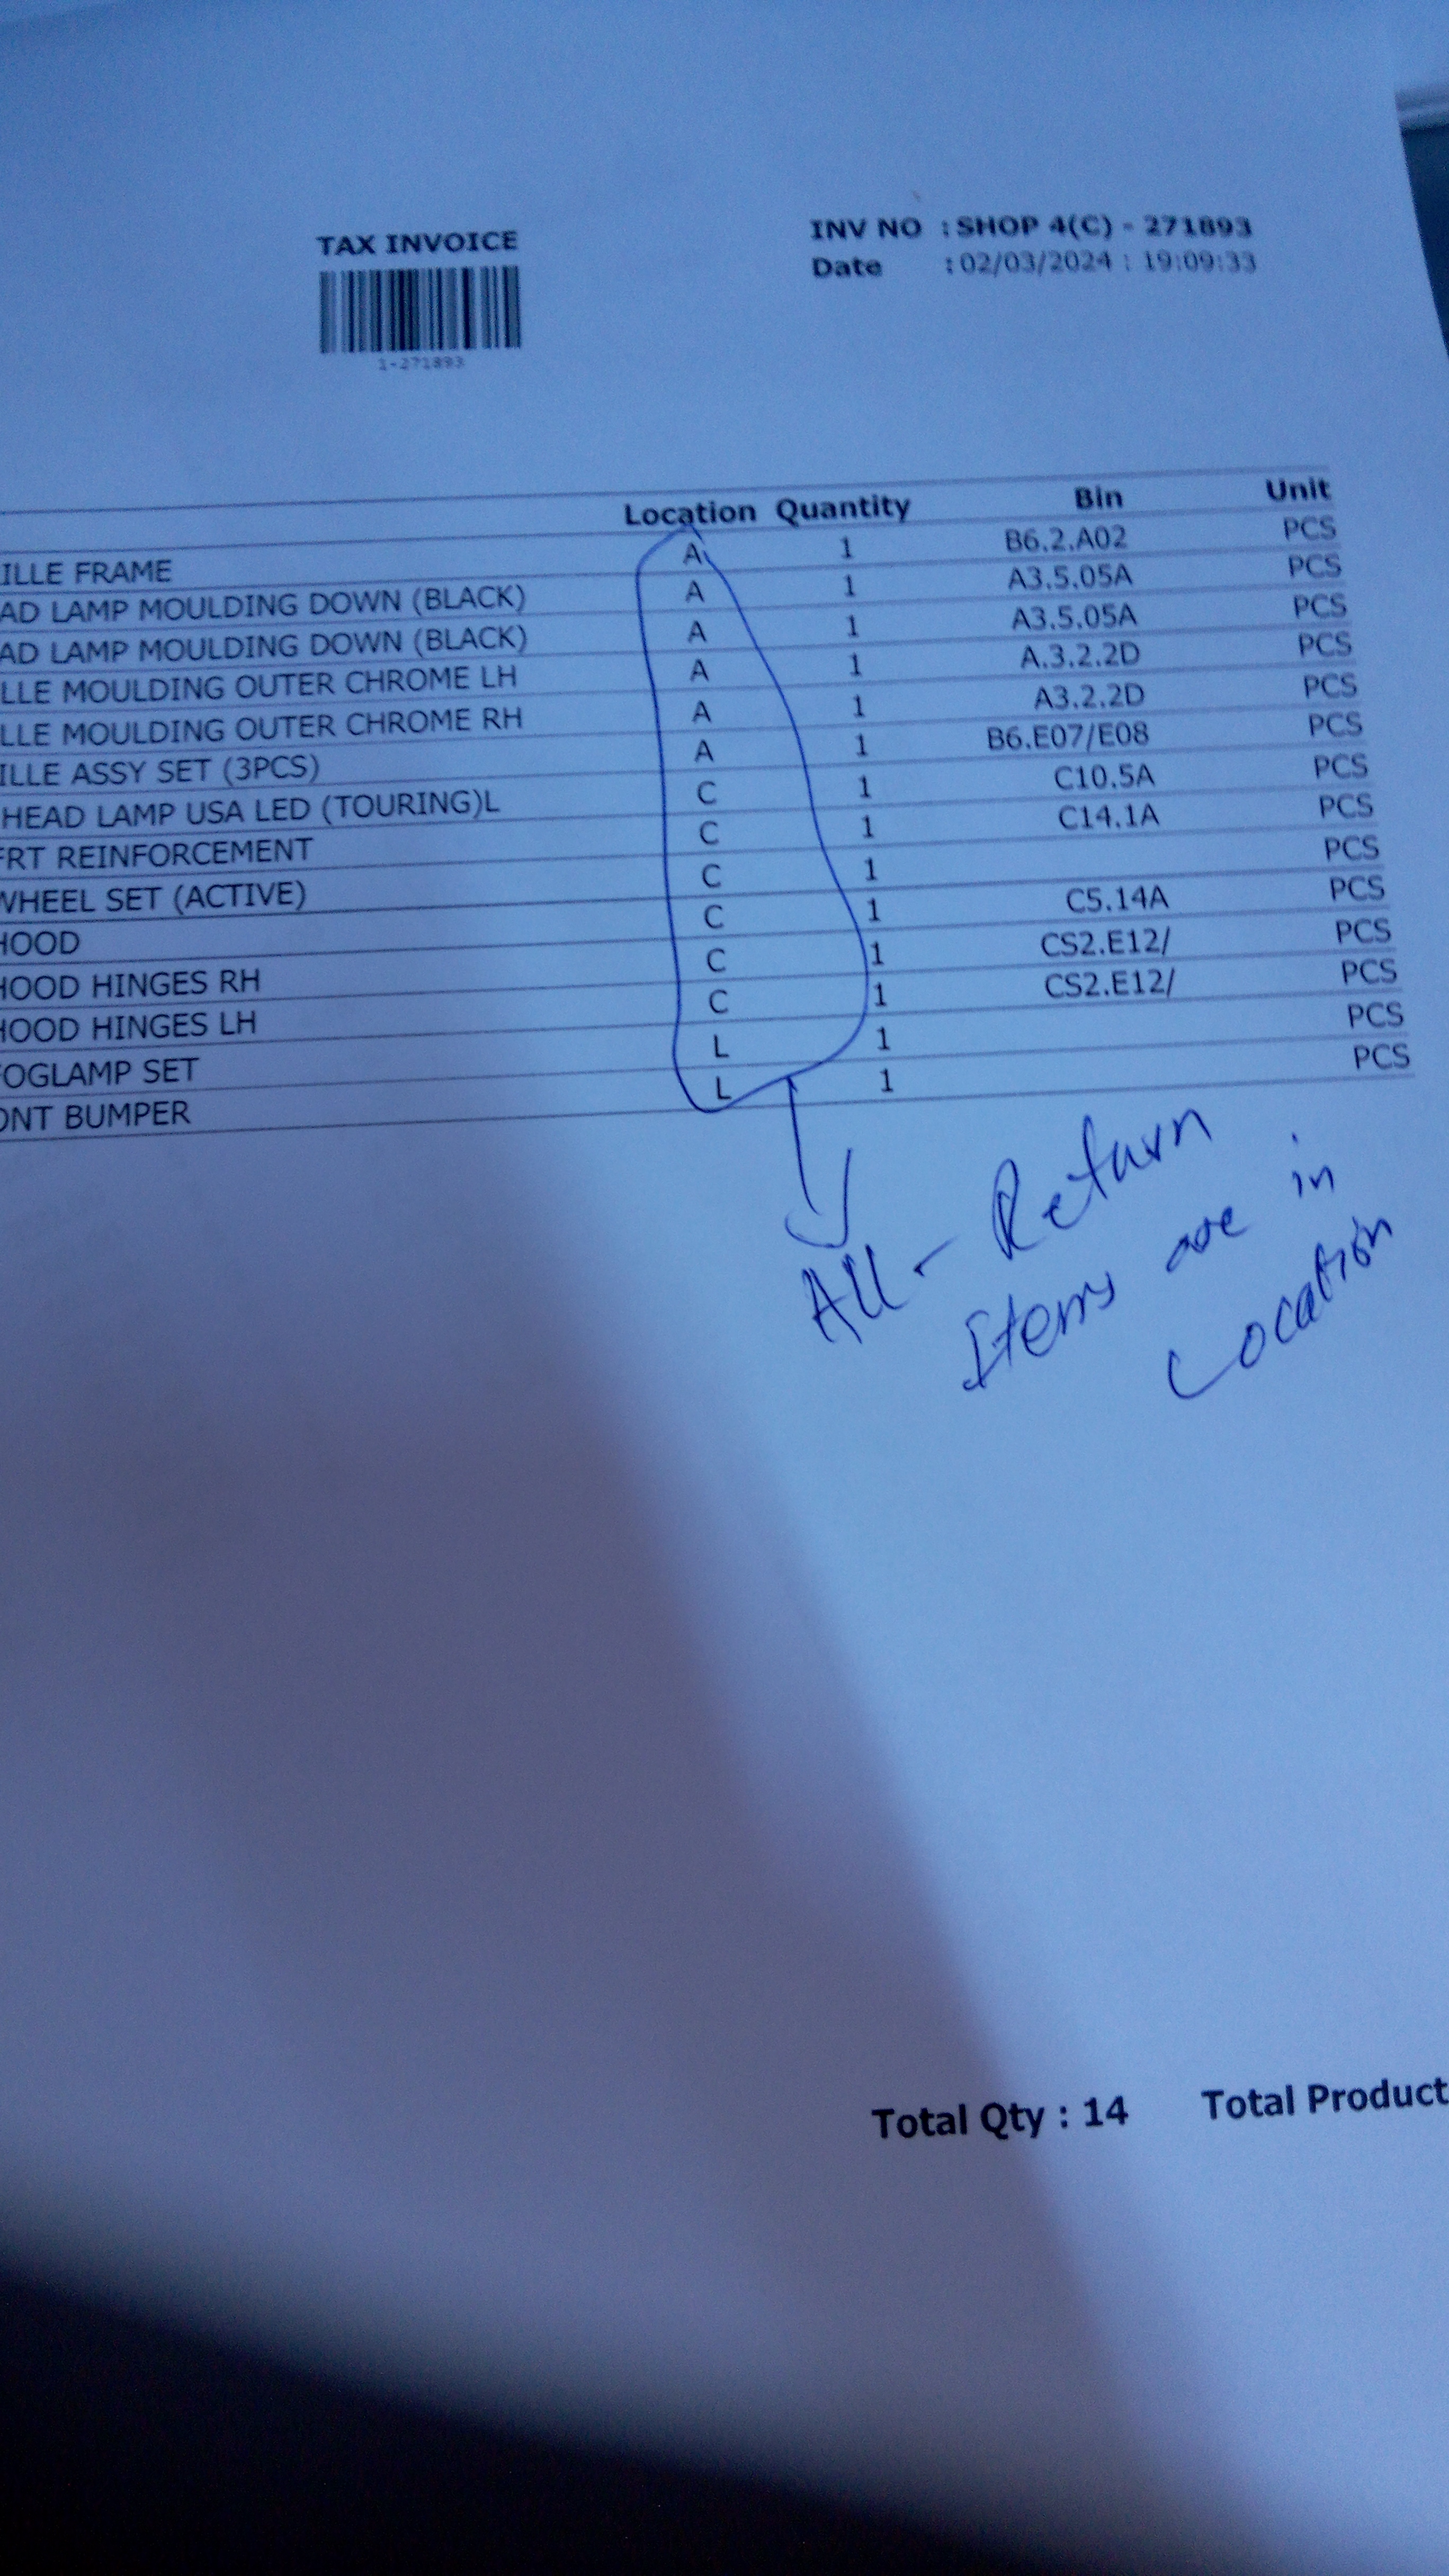 TAX INVOICE
INV NO : SHOP 4(C) - 271893
Date : 02/03/2024 : 19:09:33
1-271893
Location Quantity Bin Unit
ILLE FRAME A 1 B6.2.A02 PCS
AD LAMP MOULDING DOWN (BLACK) A 1 A3.5.05A PCS
AD LAMP MOULDING DOWN (BLACK) A 1 A3.5.05A PCS
LLE MOULDING OUTER CHROME LH A 1 A.3.2.2D PCS
LLE MOULDING OUTER CHROME RH A 1 A3.2.2D PCS
ILLE ASSY SET (3PCS) A 1 B6.E07/E08 PCS
HEAD LAMP USA LED (TOURING)L C 1 C10.5A PCS
FRT REINFORCEMENT C 1 C14.1A PCS
WHEEL SET (ACTIVE) C 1 PCS
HOOD C 1 C5.14A PCS
HOOD HINGES RH C 1 CS2.E12/ PCS
HOOD HINGES LH C 1 CS2.E12/ PCS
FOGLAMP SET L 1 PCS
ONT BUMPER L 1 PCS
All - Return
Items are in
Location
Total Qty : 14 Total Product